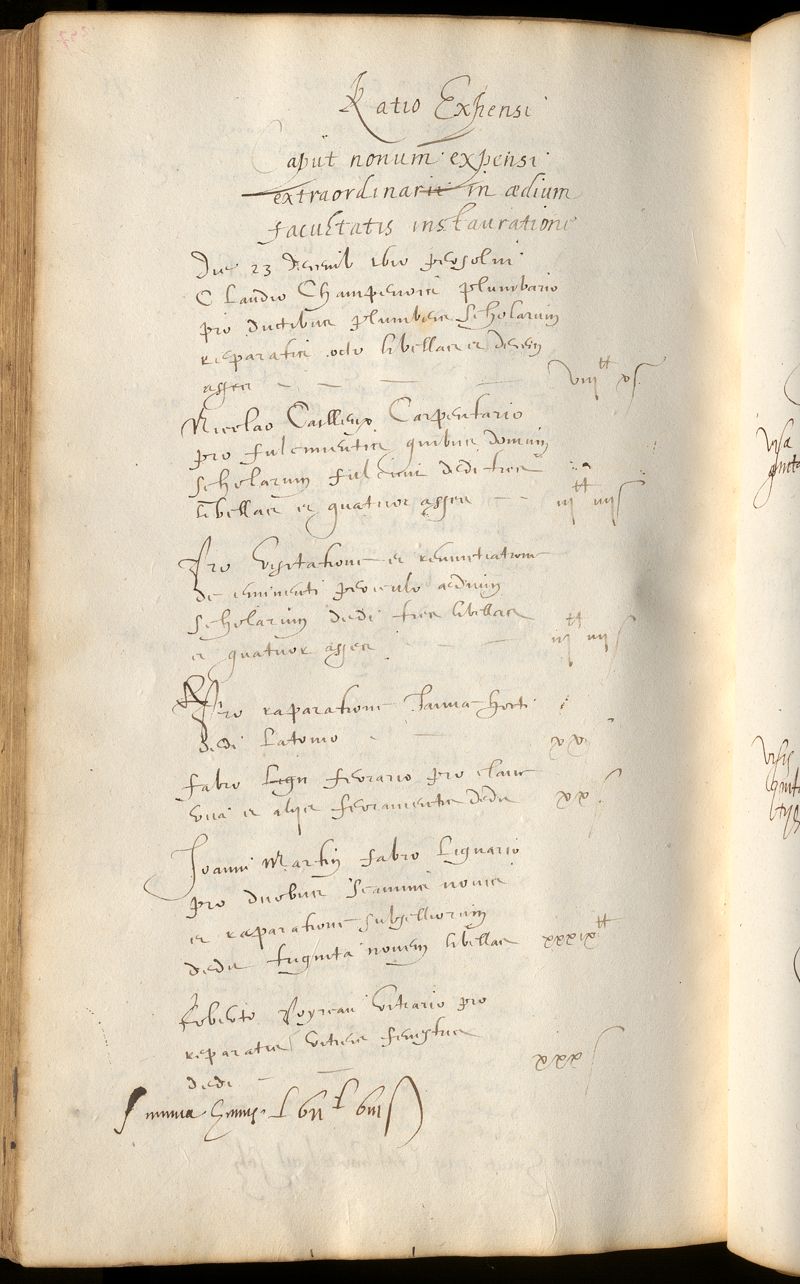 Ratio Expensi
Caput nonum expensi
extraordinarii in ædium
facultatis instauratione
Die 23 decemb 1610 persolvi
Claudio Champenois plumbario
pro ductibus plumbeis scholarum
reparatis octo libellas et decem
asses viii tt x s
Nicolao Cailleux Carpentario
pro fulcimentis quibus domum
scholarum dedi tres
libellas et quatuor asses iii tt iiii s
Pro visitatione et renuntiatione
de eminenti periculo ædium
scholarum dedi tres libellas
et quatuor asses iii tt iiii s
Pro raparatione Januæ horti
dedi Latomo xv s
fabro ferrario pro clave
una et aliis ferramentis dedi xx s
Joanni Martin fabro Lignario
pro duobus scamnis novis
et raparatione subselliorum
dedi triginta novem libellas xxxix tt
Roberto vitrario pro
reparatis vitreis fenestris
dedi xxx s
Summa